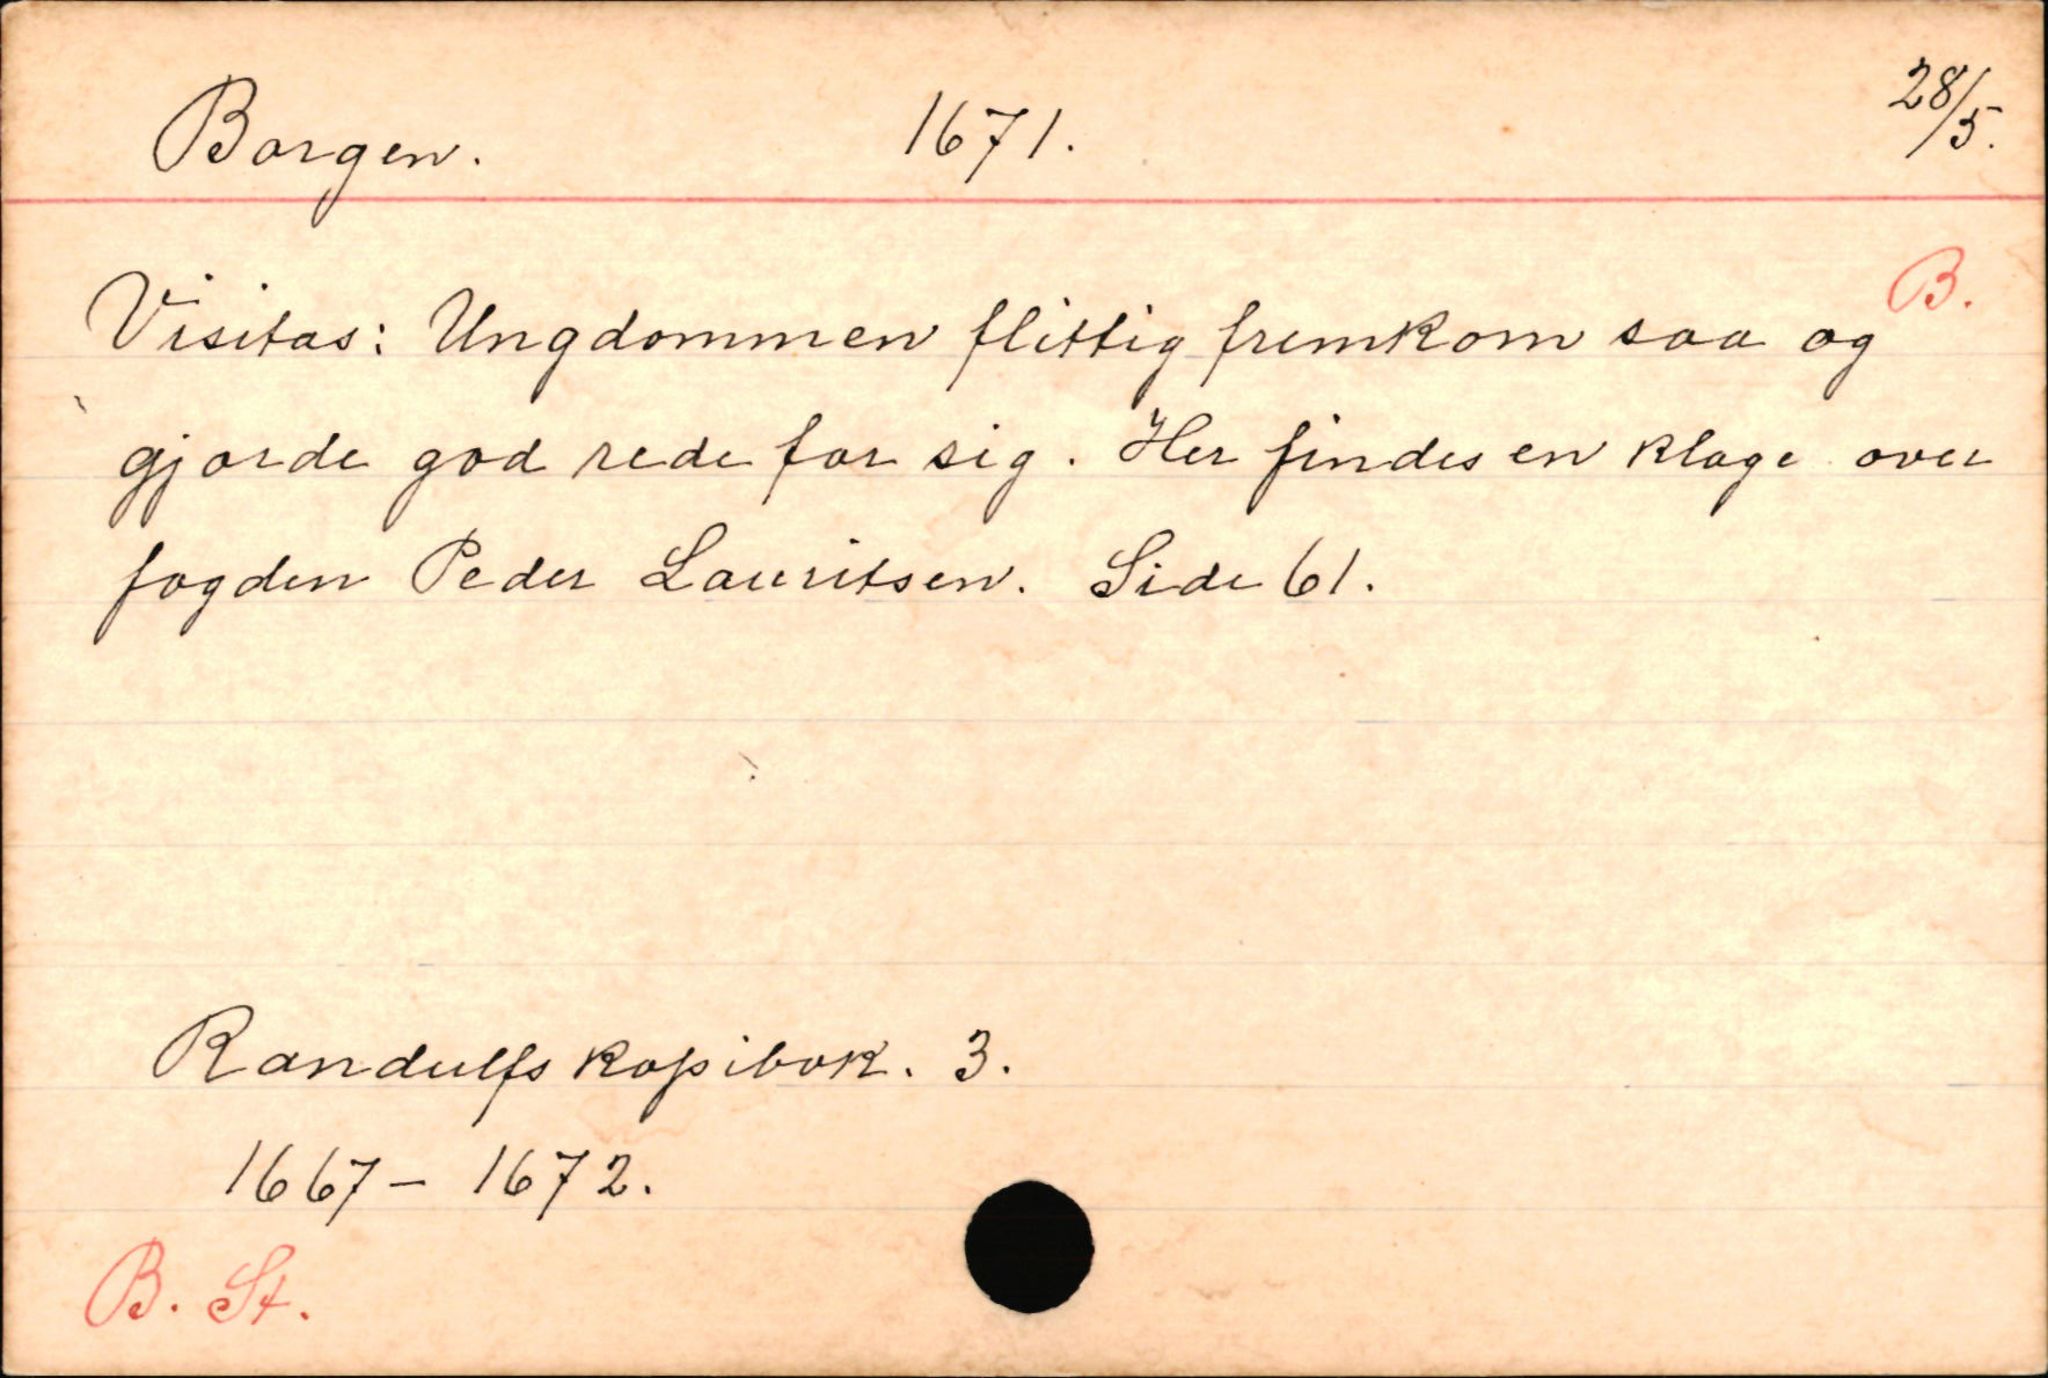 Borgen. 1671. 28/5.
B.
Visitas: Ungdommen flittig fremkom saa og
gjorde god rede for sig. Her findes en klage over
fogden Peder Lauritsen. Side 61.
Randulfs kopibok. 3.
1667-1672.
B. St.